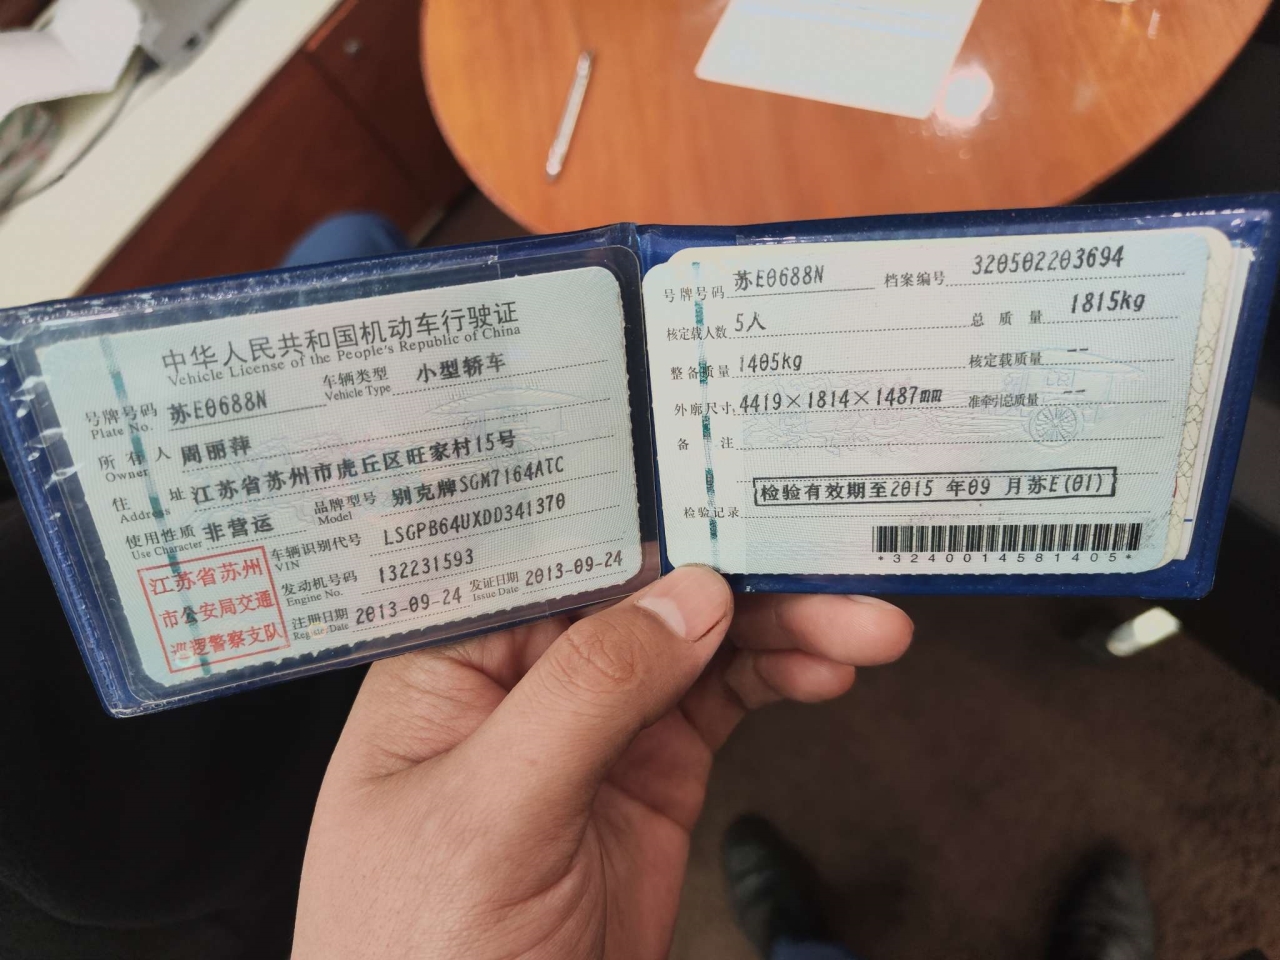 中华人民共和国机动车行驶证
Vehicle License of the People's Republic of China
号牌号码 苏E0688N 车辆类型 小型轿车
Plate No. Vehicle Type
所有人 周丽萍
Owner
住址 江苏省苏州市虎丘区旺家村15号
Address
使用性质 非营运 品牌型号 别克牌SGM7164ATC
Use Character Model
车辆识别代号 LSGPB64UXDD341370
VIN
发动机号码 132231593
Engine No.
注册日期 2013-09-24 发证日期 2013-09-24
Register Date Issue Date
江苏省苏州
市公安局交通
巡逻警察支队
号牌号码 苏E0688N 档案编号 320502203694
核定载人数 5人 总质量 1815kg
整备质量 1405kg 核定载质量 --
外廓尺寸 4419×1814×1487mm 准牵引总质量 --
备注
检验有效期至2015 年09 月苏E(01)
检验记录
*3240014581405*